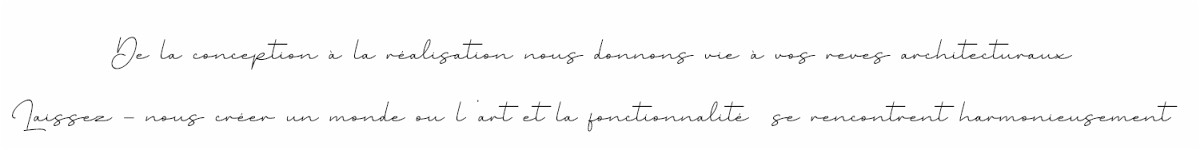 De la conception à la réalisation nous donnons vie à vos reves architecturaux
Laissez - nous créer un monde ou l'art et la fonctionnalité se rencontrent harmonieusement